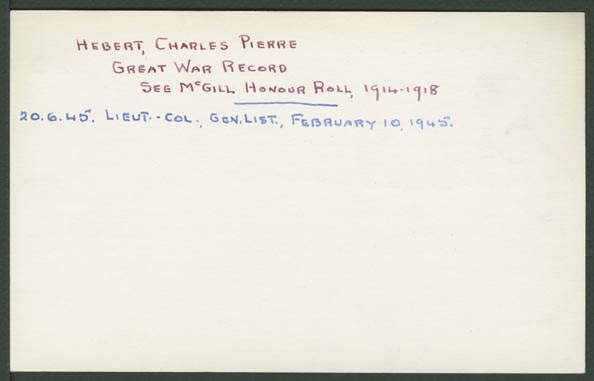 HEBERT, CHARLES PIERRE
GREAT WAR RECORD
SEE McGILL HONOUR ROLL, 1914-1918
20.6.45. LIEUT.-COL., GEN.LIST., FEBRUARY 10, 1945.